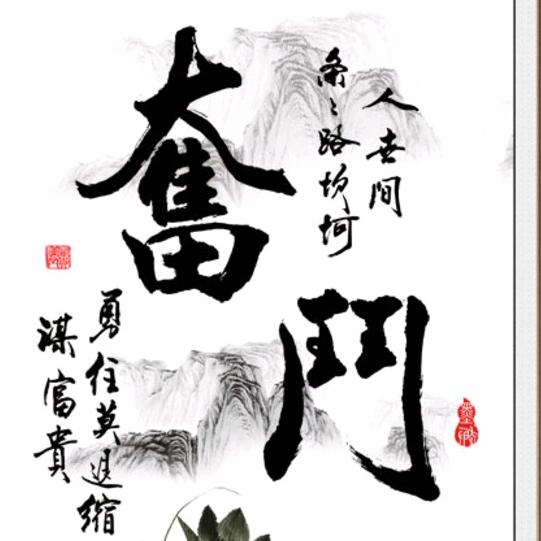 奮
鬥
人世間
条々路坎坷
勇往莫退缩
谋富貴